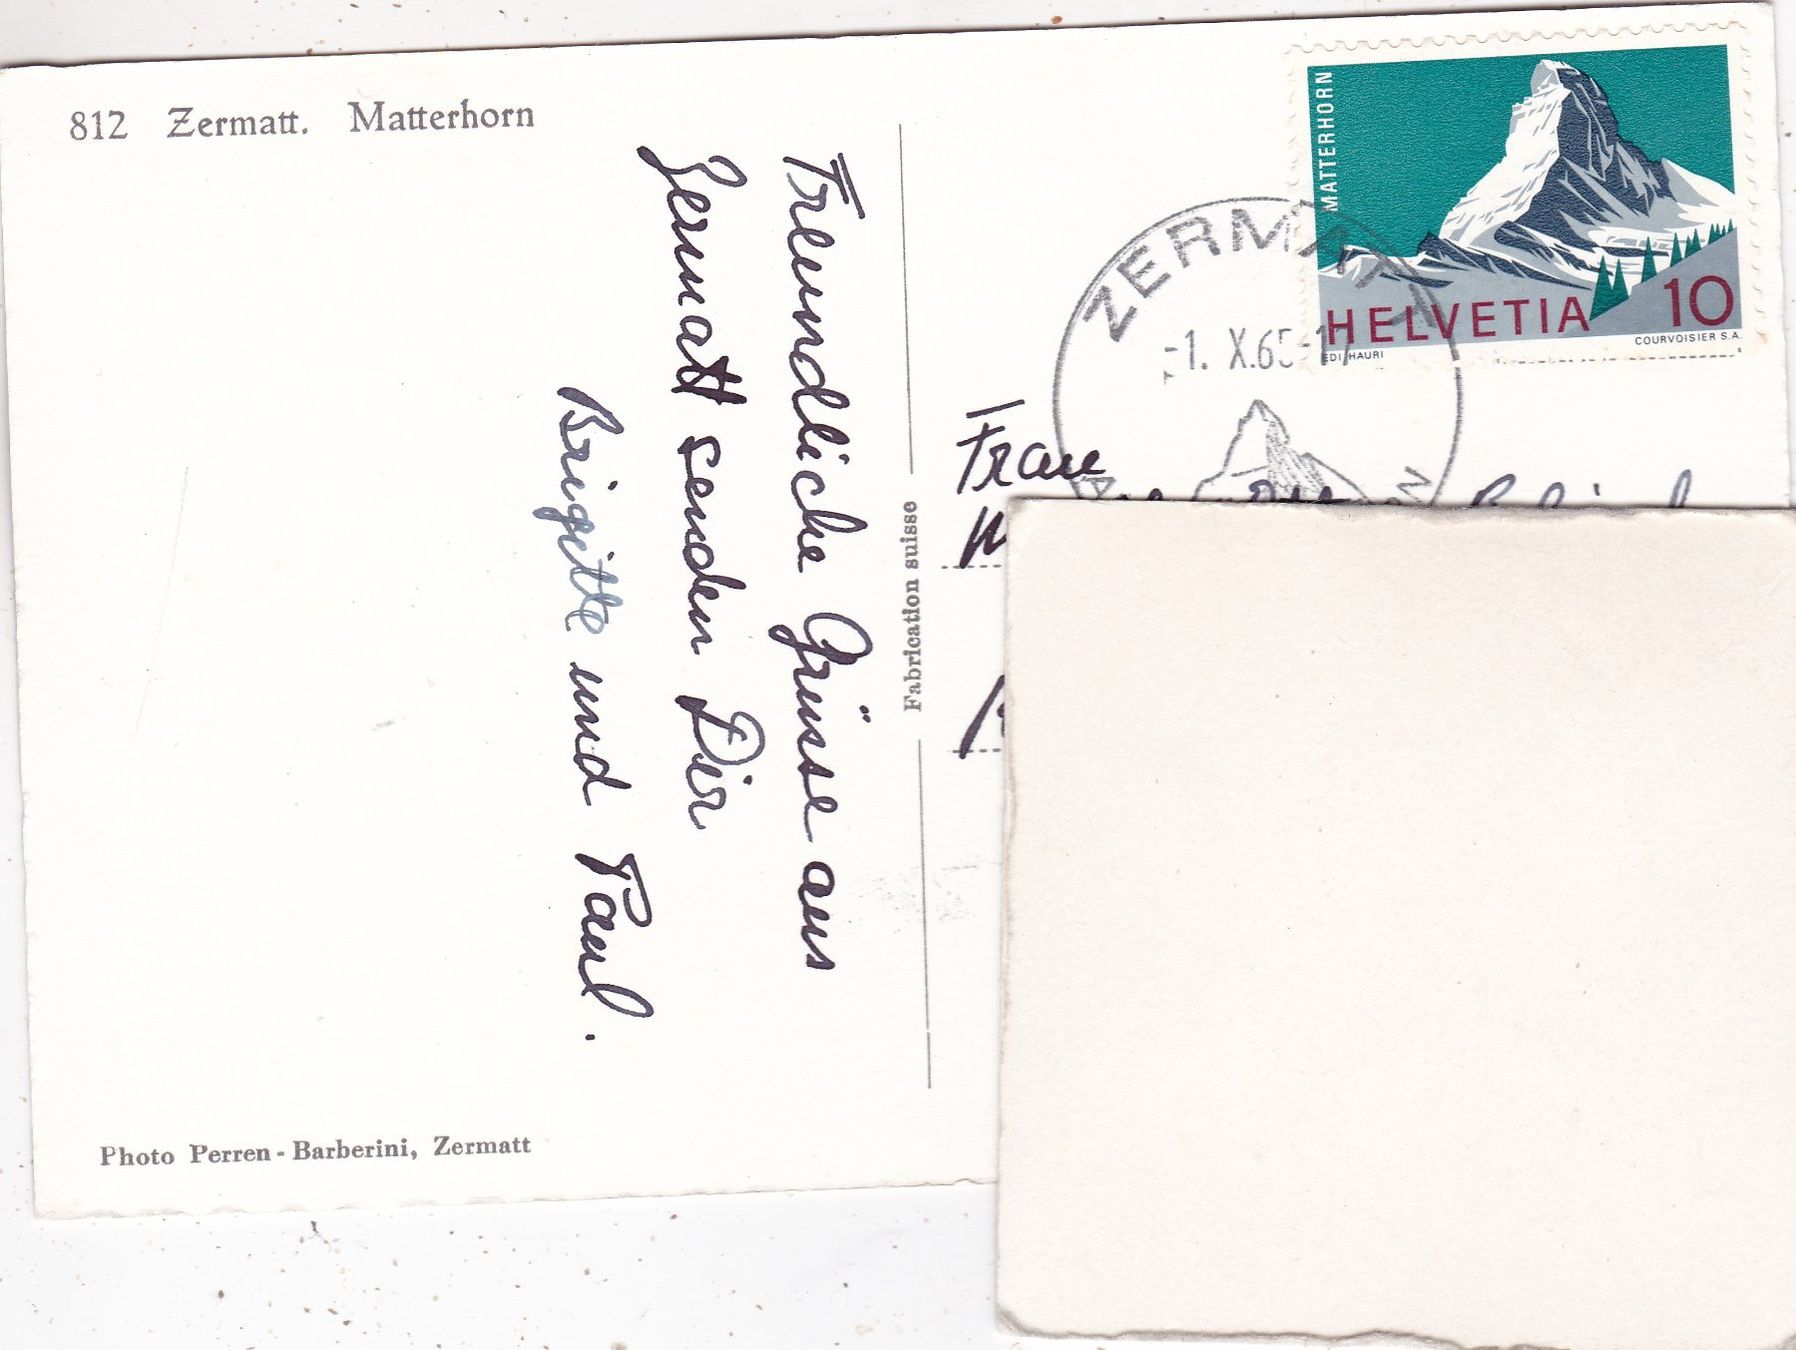 812 Zermatt. Matterhorn
Freundliche Grüsse aus
Zermatt senden Dir
Brigitte und Paul.
Photo Perren-Barberini, Zermatt
Fabrication suisse
MATTERHORN
HELVETIA 10
EDI HAURI
COURVOISIER S.A.
ZERMATT
-1. X.65-17
Frau